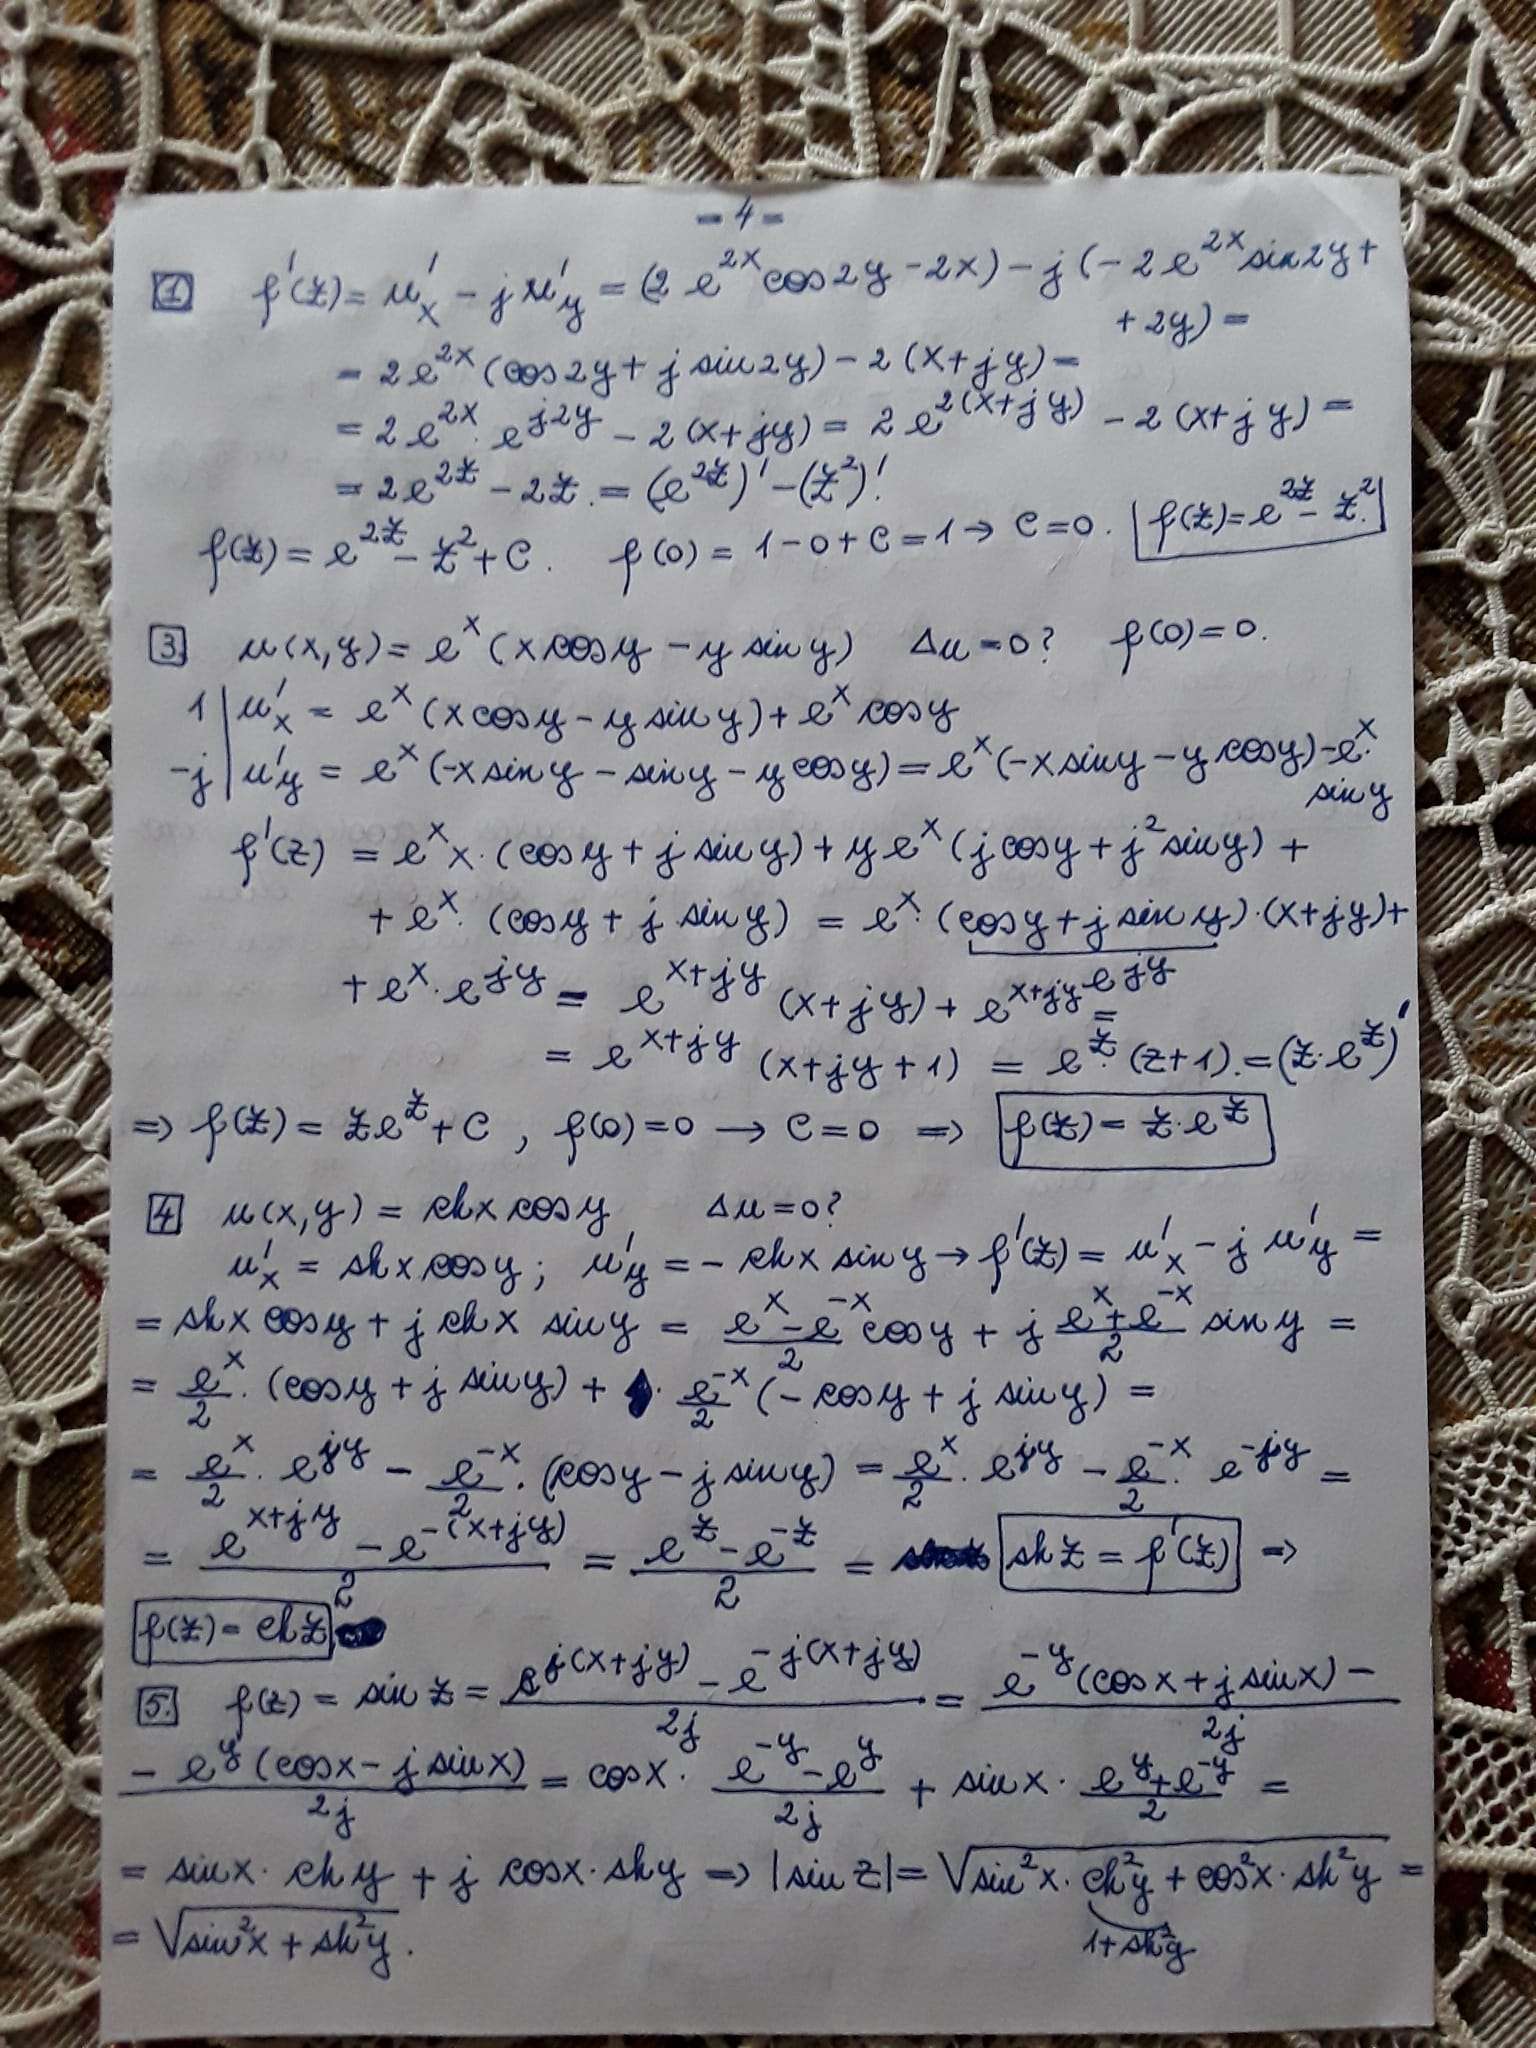 - 4 -
1 f'(z) = u'x - j u'y = (2 e^2x cos2y - 2x) - j (-2 e^2x sin2y +
+ 2y) =
= 2 e^2x (cos2y + j sin2y) - 2 (x + jy) =
= 2 e^2x · e^j2y - 2 (x + jy) = 2 e^2(x+jy) - 2 (x + jy) =
= 2e^2z - 2z = (e^2z)' - (z²)'
f(z) = e^2z - z² + C. f(0) = 1 - 0 + C = 1 → C = 0. f(z) = e^2z - z².
3. u(x,y) = e^x (x cosy - y siny) Δu = 0? f(0) = 0.
1 | u'x = e^x (x cosy - y siny) + e^x cosy
-j | u'y = e^x (-x siny - siny - y cosy) = e^x (-x siny - y cosy) - e^x ·
siny
f'(z) = e^x x · (cosy + j siny) + y e^x (j cosy + j² siny) +
+ e^x · (cosy + j siny) = e^x · (cosy + j siny) · (x + jy) +
e^jy
+ e^x · e^jy = e^x+jy (x + jy) + e^x+jy =
= e^x+jy (x + jy + 1) = e^z · (z + 1) = (z · e^z)'
⇒ f(z) = z e^z + C , f(0) = 0 → C = 0 ⇒ f(z) = z · e^z
4 u(x,y) = chx cosy Δu = 0?
u'x = shx cosy; u'y = - chx siny → f'(z) = u'x - j u'y =
= shx cosy + j chx siny = (e^x - e^-x)/2 cosy + j (e^x + e^-x)/2 siny =
= e^x/2 · (cosy + j siny) + e^-x/2 (- cosy + j siny) =
= e^x/2 · e^jy - e^-x/2 · (cosy - j siny) = e^x/2 · e^jy - e^-x/2 · e^-jy =
= (e^x+jy - e^-(x+jy))/2 = (e^z - e^-z)/2 = sh z = f'(z) ⇒
f(z) = ch z
5. f(z) = sin z = (e^j(x+jy) - e^-j(x+jy))/2j = e^-y (cosx + j sinx) - /2j
- e^y (cosx - j sinx)/2j = cosx · (e^-y - e^y)/2j + sinx · (e^y + e^-y)/2 =
= sinx · chy + j cosx · shy ⇒ |sin z| = √(sin²x · ch²y + cos²x · sh²y) =
1 + sh²y
= √(sin²x + sh²y).